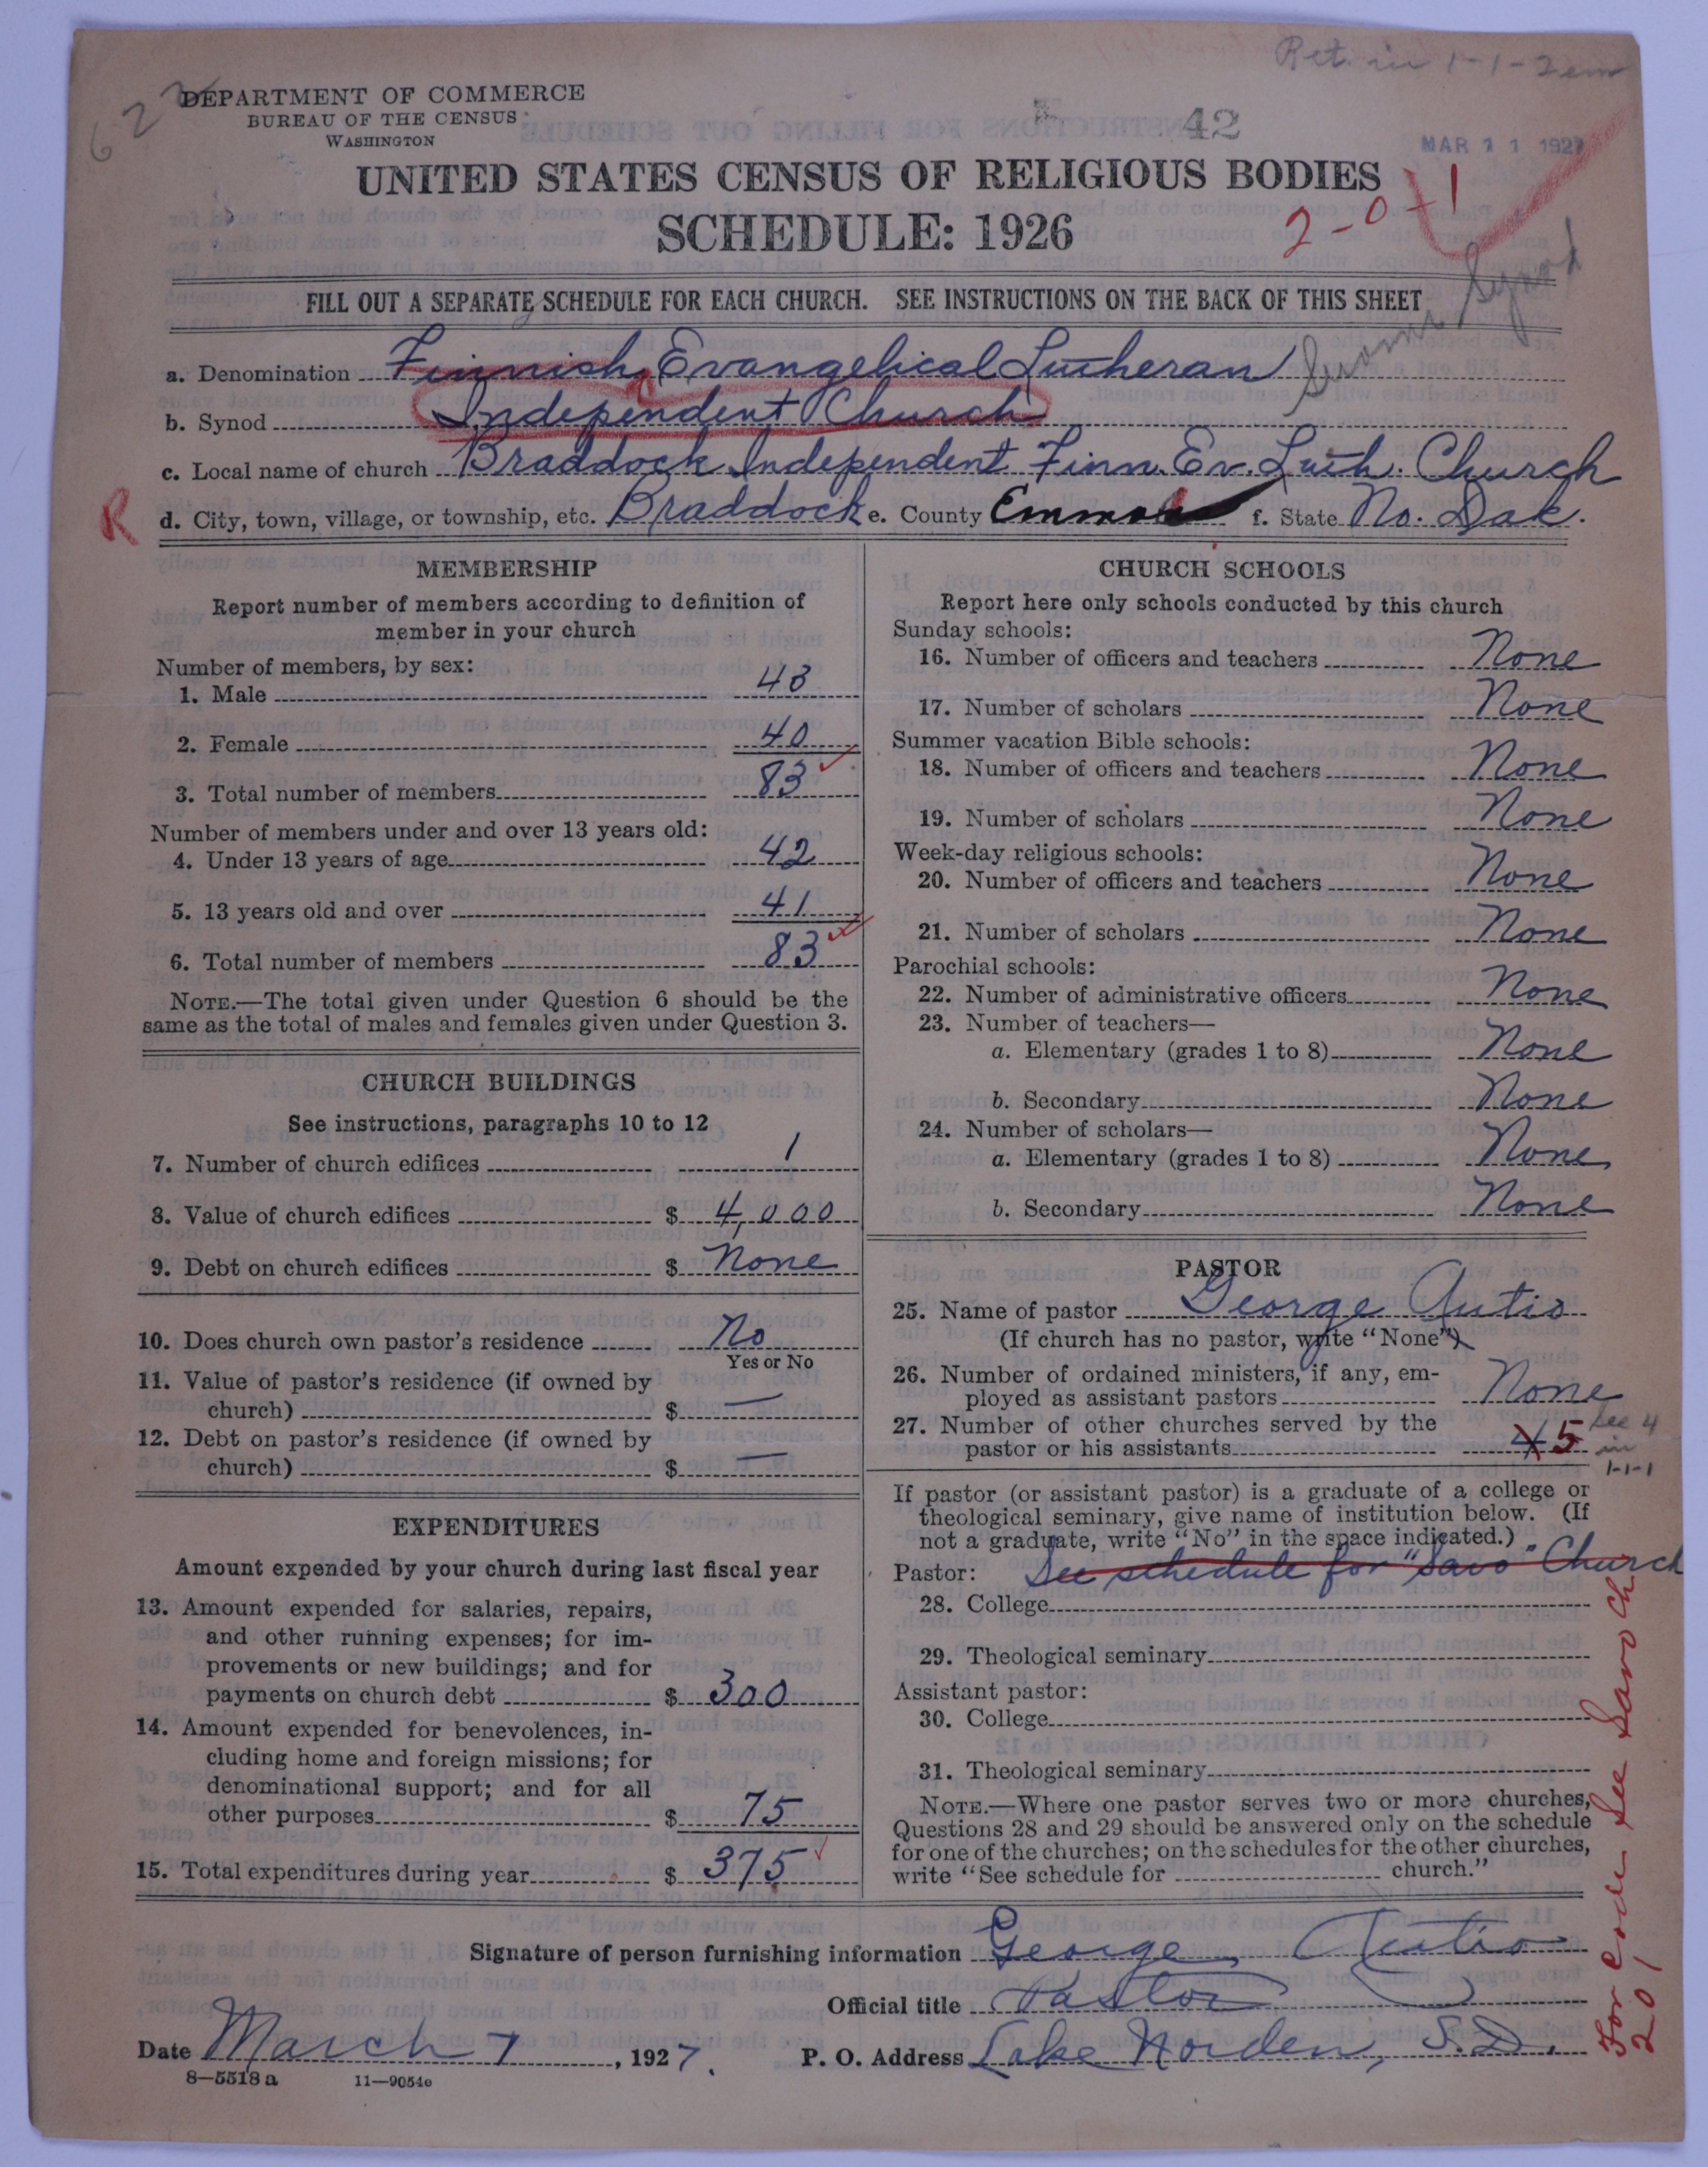 Ret. in 1-1-2 em
622
DEPARTMENT OF COMMERCE
BUREAU OF THE CENSUS
WASHINGTON
42
MAR 11 1927
UNITED STATES CENSUS OF RELIGIOUS BODIES
SCHEDULE: 1926
2-0-1
FILL OUT A SEPARATE SCHEDULE FOR EACH CHURCH. SEE INSTRUCTIONS ON THE BACK OF THIS SHEET
Suomi Synod
a. Denomination Finnish Evangelical Lutheran
b. Synod Independent Church
c. Local name of church Braddock Independent Finn. Ev. Luth. Church
R
d. City, town, village, or township, etc. Braddock e. County Emmons f. State No. Dak.
MEMBERSHIP
Report number of members according to definition of
member in your church
Number of members, by sex:
1. Male 43
2. Female 40
3. Total number of members 83
Number of members under and over 13 years old:
4. Under 13 years of age 42
5. 13 years old and over 41
6. Total number of members 83
NOTE.—The total given under Question 6 should be the
same as the total of males and females given under Question 3.
CHURCH BUILDINGS
See instructions, paragraphs 10 to 12
7. Number of church edifices 1
8. Value of church edifices $ 4,000
9. Debt on church edifices $ None
10. Does church own pastor's residence No
Yes or No
11. Value of pastor's residence (if owned by
church) $ —
12. Debt on pastor's residence (if owned by
church) $ —
EXPENDITURES
Amount expended by your church during last fiscal year
13. Amount expended for salaries, repairs,
and other running expenses; for im-
provements or new buildings; and for
payments on church debt $ 300
14. Amount expended for benevolences, in-
cluding home and foreign missions; for
denominational support; and for all
other purposes $ 75
15. Total expenditures during year $ 375
CHURCH SCHOOLS
Report here only schools conducted by this church
Sunday schools:
16. Number of officers and teachers None
17. Number of scholars None
Summer vacation Bible schools:
18. Number of officers and teachers None
19. Number of scholars None
Week-day religious schools:
20. Number of officers and teachers None
21. Number of scholars None
Parochial schools:
22. Number of administrative officers None
23. Number of teachers—
a. Elementary (grades 1 to 8) None
b. Secondary None
24. Number of scholars—
a. Elementary (grades 1 to 8) None
b. Secondary None
PASTOR
25. Name of pastor George Autio
(If church has no pastor, write "None")
26. Number of ordained ministers, if any, em-
ployed as assistant pastors None
27. Number of other churches served by the
pastor or his assistants 4 5
see 4
in
1-1-1
If pastor (or assistant pastor) is a graduate of a college or
theological seminary, give name of institution below. (If
not a graduate, write "No" in the space indicated.)
Pastor: See schedule for "Savo" Church
28. College
29. Theological seminary
Assistant pastor:
30. College
31. Theological seminary
NOTE.—Where one pastor serves two or more churches,
Questions 28 and 29 should be answered only on the schedule
for one of the churches; on the schedules for the other churches,
write "See schedule for church."
For code see Savo Ch
201
Signature of person furnishing information George Autio
Official title Pastor
Date March 7, 1927. P. O. Address Lake Norden, S.D.
8—5518 a 11—9054e